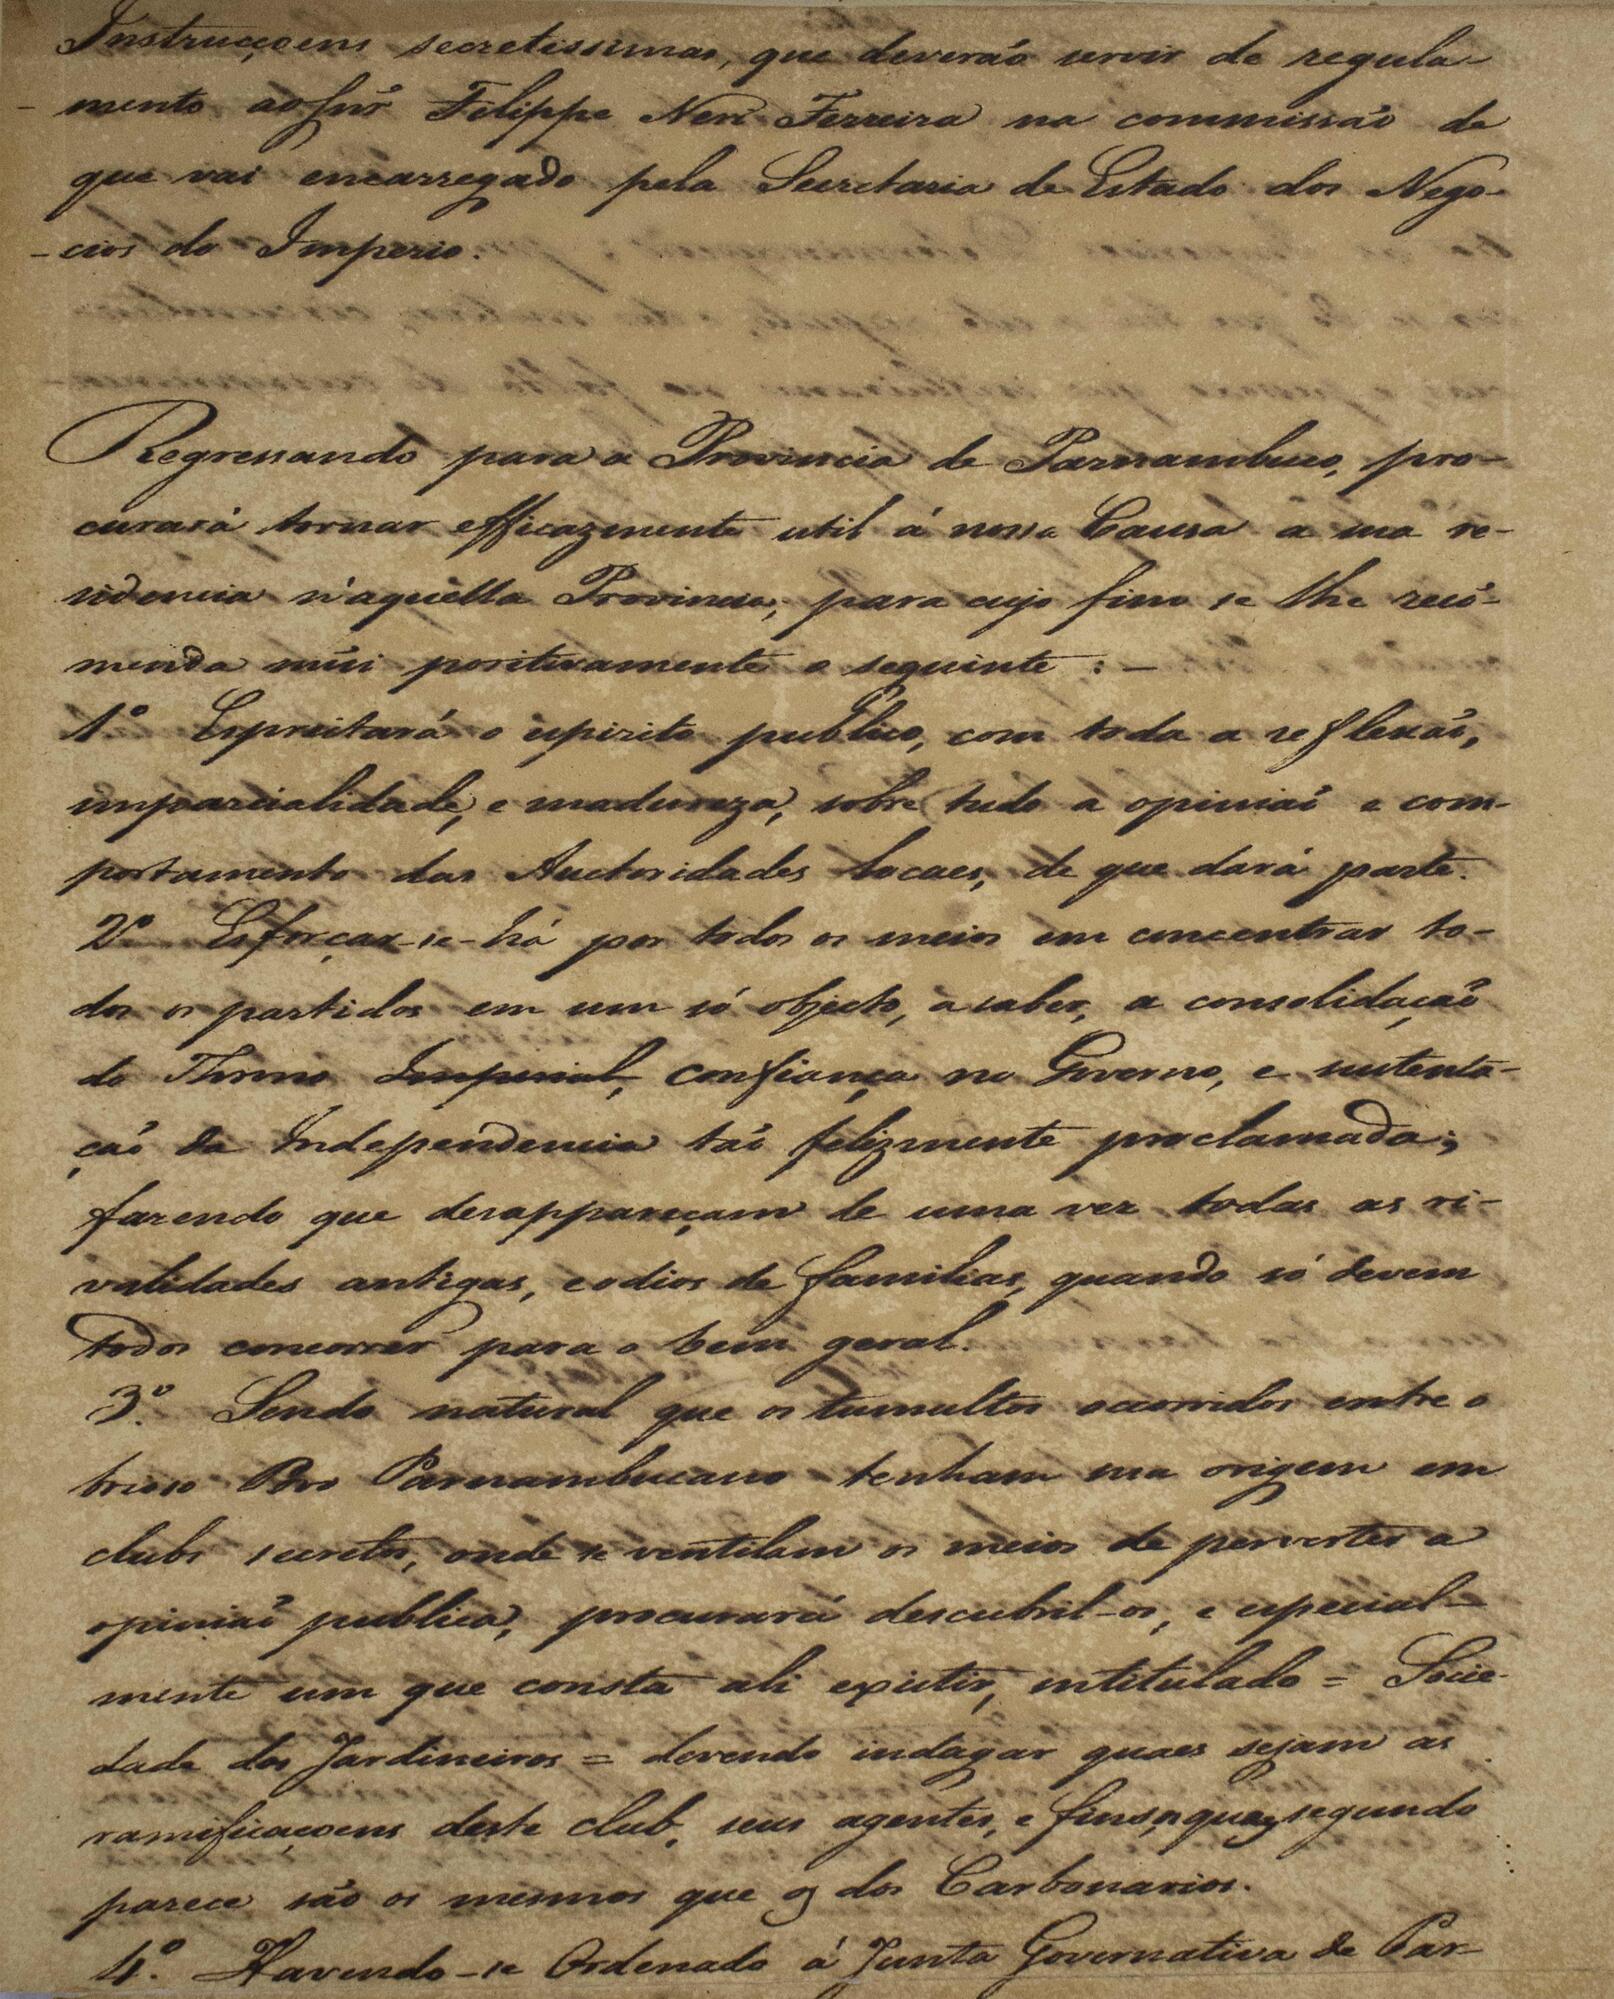 Instrucçoens secretissimas, que deverão servir de regula-
-mento ao Snr̃ Filippe Neri Ferreira na commissão de
que vai encarregado pela Secretaria de Estado dos Nego-
-cios do Imperio.
Regressando para a Provincia de Parnambuco, pro-
curará tornar efficazmente util á nossa Causa a sua re-
sidencia n'aquella Provincia, para cujo fim se lhe reco-
menda mũi positivamente o seguinte : —
1º Espreitará o espirito publico, com toda a reflexão,
imparcialidade, e madureza, sobre tudo a opinião e com-
portamento das Auctoridades locaes, de que dará parte.
2º Esforçar-se-há por todos os meios em concentrar to-
dos os partidos em um só objecto, a saber, a consolidação
do Throno Imperial, confiança no Governo, e sustenta-
ção da Independencia tão felizmente proclamada;
fazendo que desappareçam de uma vez todas as ri-
validades antigas, e odios de familias, quando só devem
todos concorrer para o bem geral.
3º. Sendo natural que os tumultos occorridos entre o
brioso Povo Parnambucano tenham sua origem em
clubs secretos, onde se ventilam os meios de perverter a
opinião publica, procurará descubril-os, e especial-
mente um que consta ali existir, intitulado = Socie-
dade dos Jardineiros = devendo indagar quaes sejam as
ramificaçoens deste club, seus agentes, e fins, os quaes segundo
parece são os mesmos que os dos Carbonarios.
4º. Havendo-se Ordenado á Junta Governativa de Par-